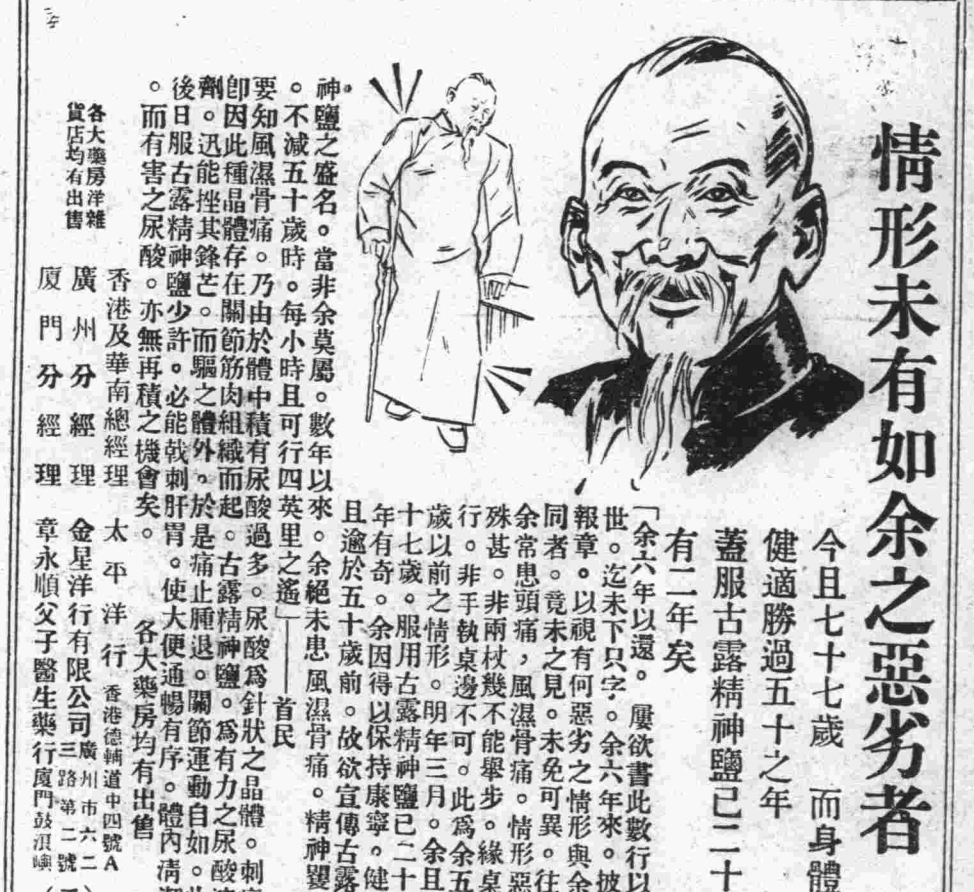 情形未有如余之惡劣者
今且七十七歲 而身體
健適勝過五十之年
蓋服古露精神鹽已二十
有二年矣
「余六年以還。屢欲書此數行以
世。迄未下只字。余六年來。披
報章。以視有何惡劣之情形與余
同者。竟未之見。未免可異。往
余常患頭痛，風濕骨痛。情形惡
殊甚。非兩杖幾不能舉步。緣桌
行。非手執桌邊不可。此爲余五
歲以前之情形。明年三月。余且
十七歲。服用古露精神鹽已二十
年有奇。余因得以保持康寧。健
且逾於五十歲前。故欲宣傳古露
神鹽之盛名。當非余莫屬。數年以來。余絕未患風濕骨痛。精神矍
。不減五十歲時。每小時且可行四英里之遙」——首民
要知風濕骨痛。乃由於體中積有尿酸過多。尿酸爲針狀之晶體。刺
卽因此種晶體存在關節筋肉組織而起。古露精神鹽。爲有力之尿酸
劑。迅能挫其鋒芒。而驅之體外。於是痛止腫退。關節運動自如。
後日服古露精神鹽少許。必能戟刺肝胃。使大便通暢有序。體內清
。而有害之尿酸。亦無再積之機會矣。 各大藥房均有出售
各大藥房洋雜
貨店均有出售
香港及華南總經理 太平洋行 香港德輔道中四號A
廣州分經理 金星洋行有限公司 廣州市六二
三路第二號
廈門分經理 章永順父子醫生藥行廈門鼓浪嶼